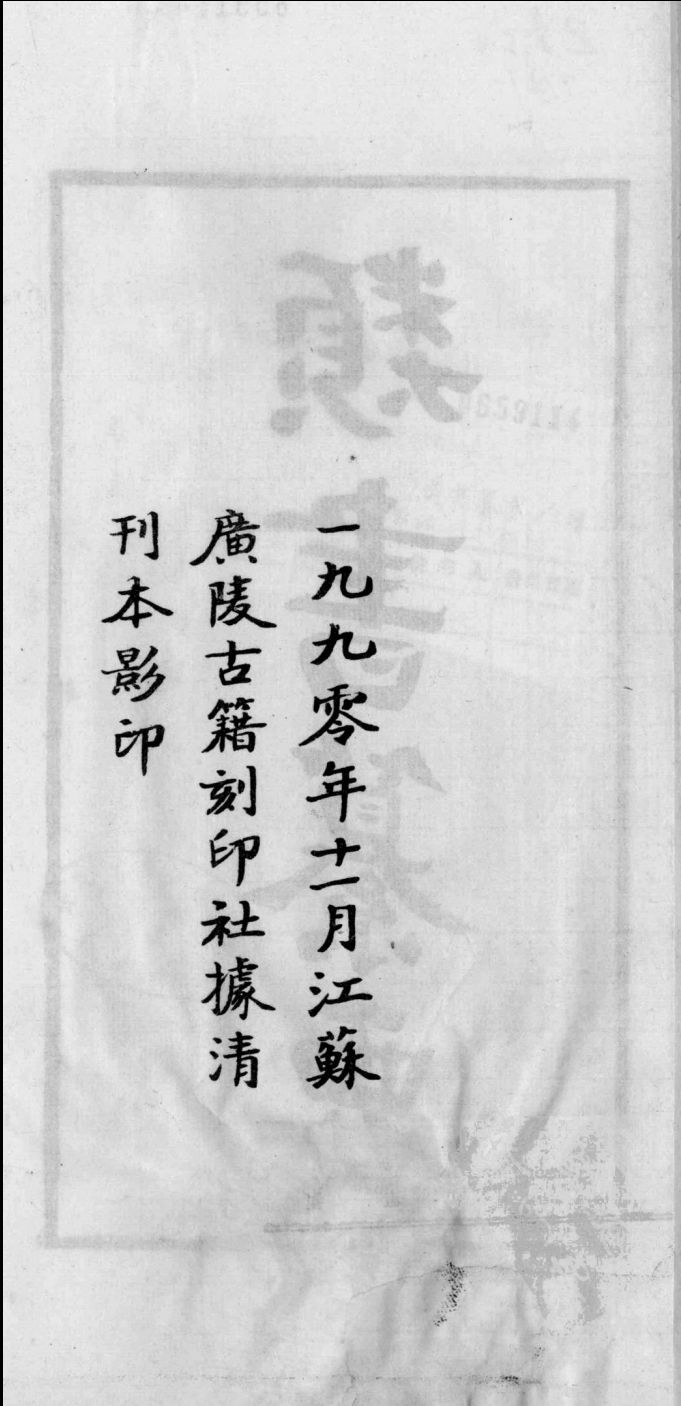 一九九零年十一月江蘇
廣陵古籍刻印社據清
刊本影印